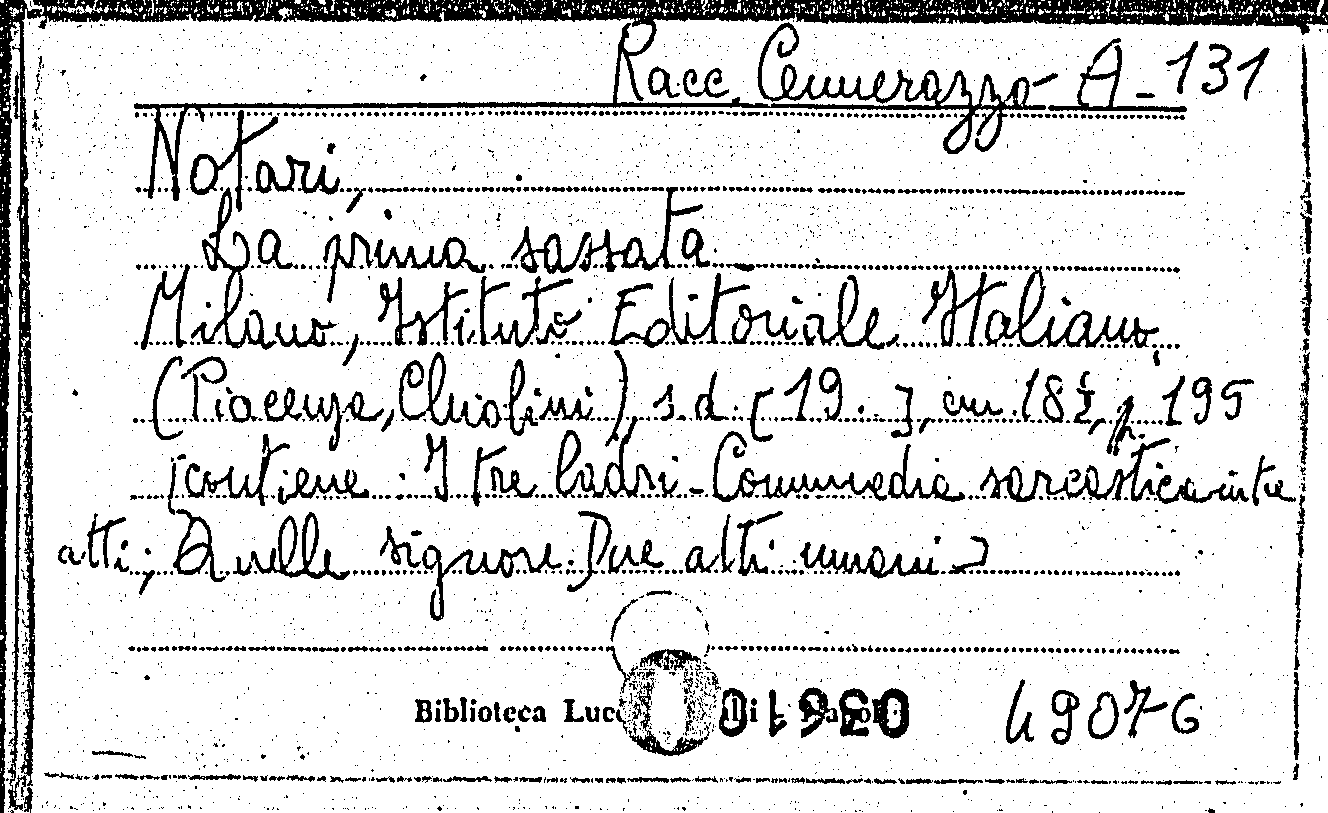 Racc. Cennerazzo A-131
Notari,
La prima sassata
Milano, Istituto Editoriale Italiano,
(Piacenza, Chiolini), s.d. [19. ], cm. 18½, p. 195
[contiene: I tre ladri - Commedia sarcastica in tre
atti; Quelle signore. Due atti umani]
Biblioteca Lucc
49076